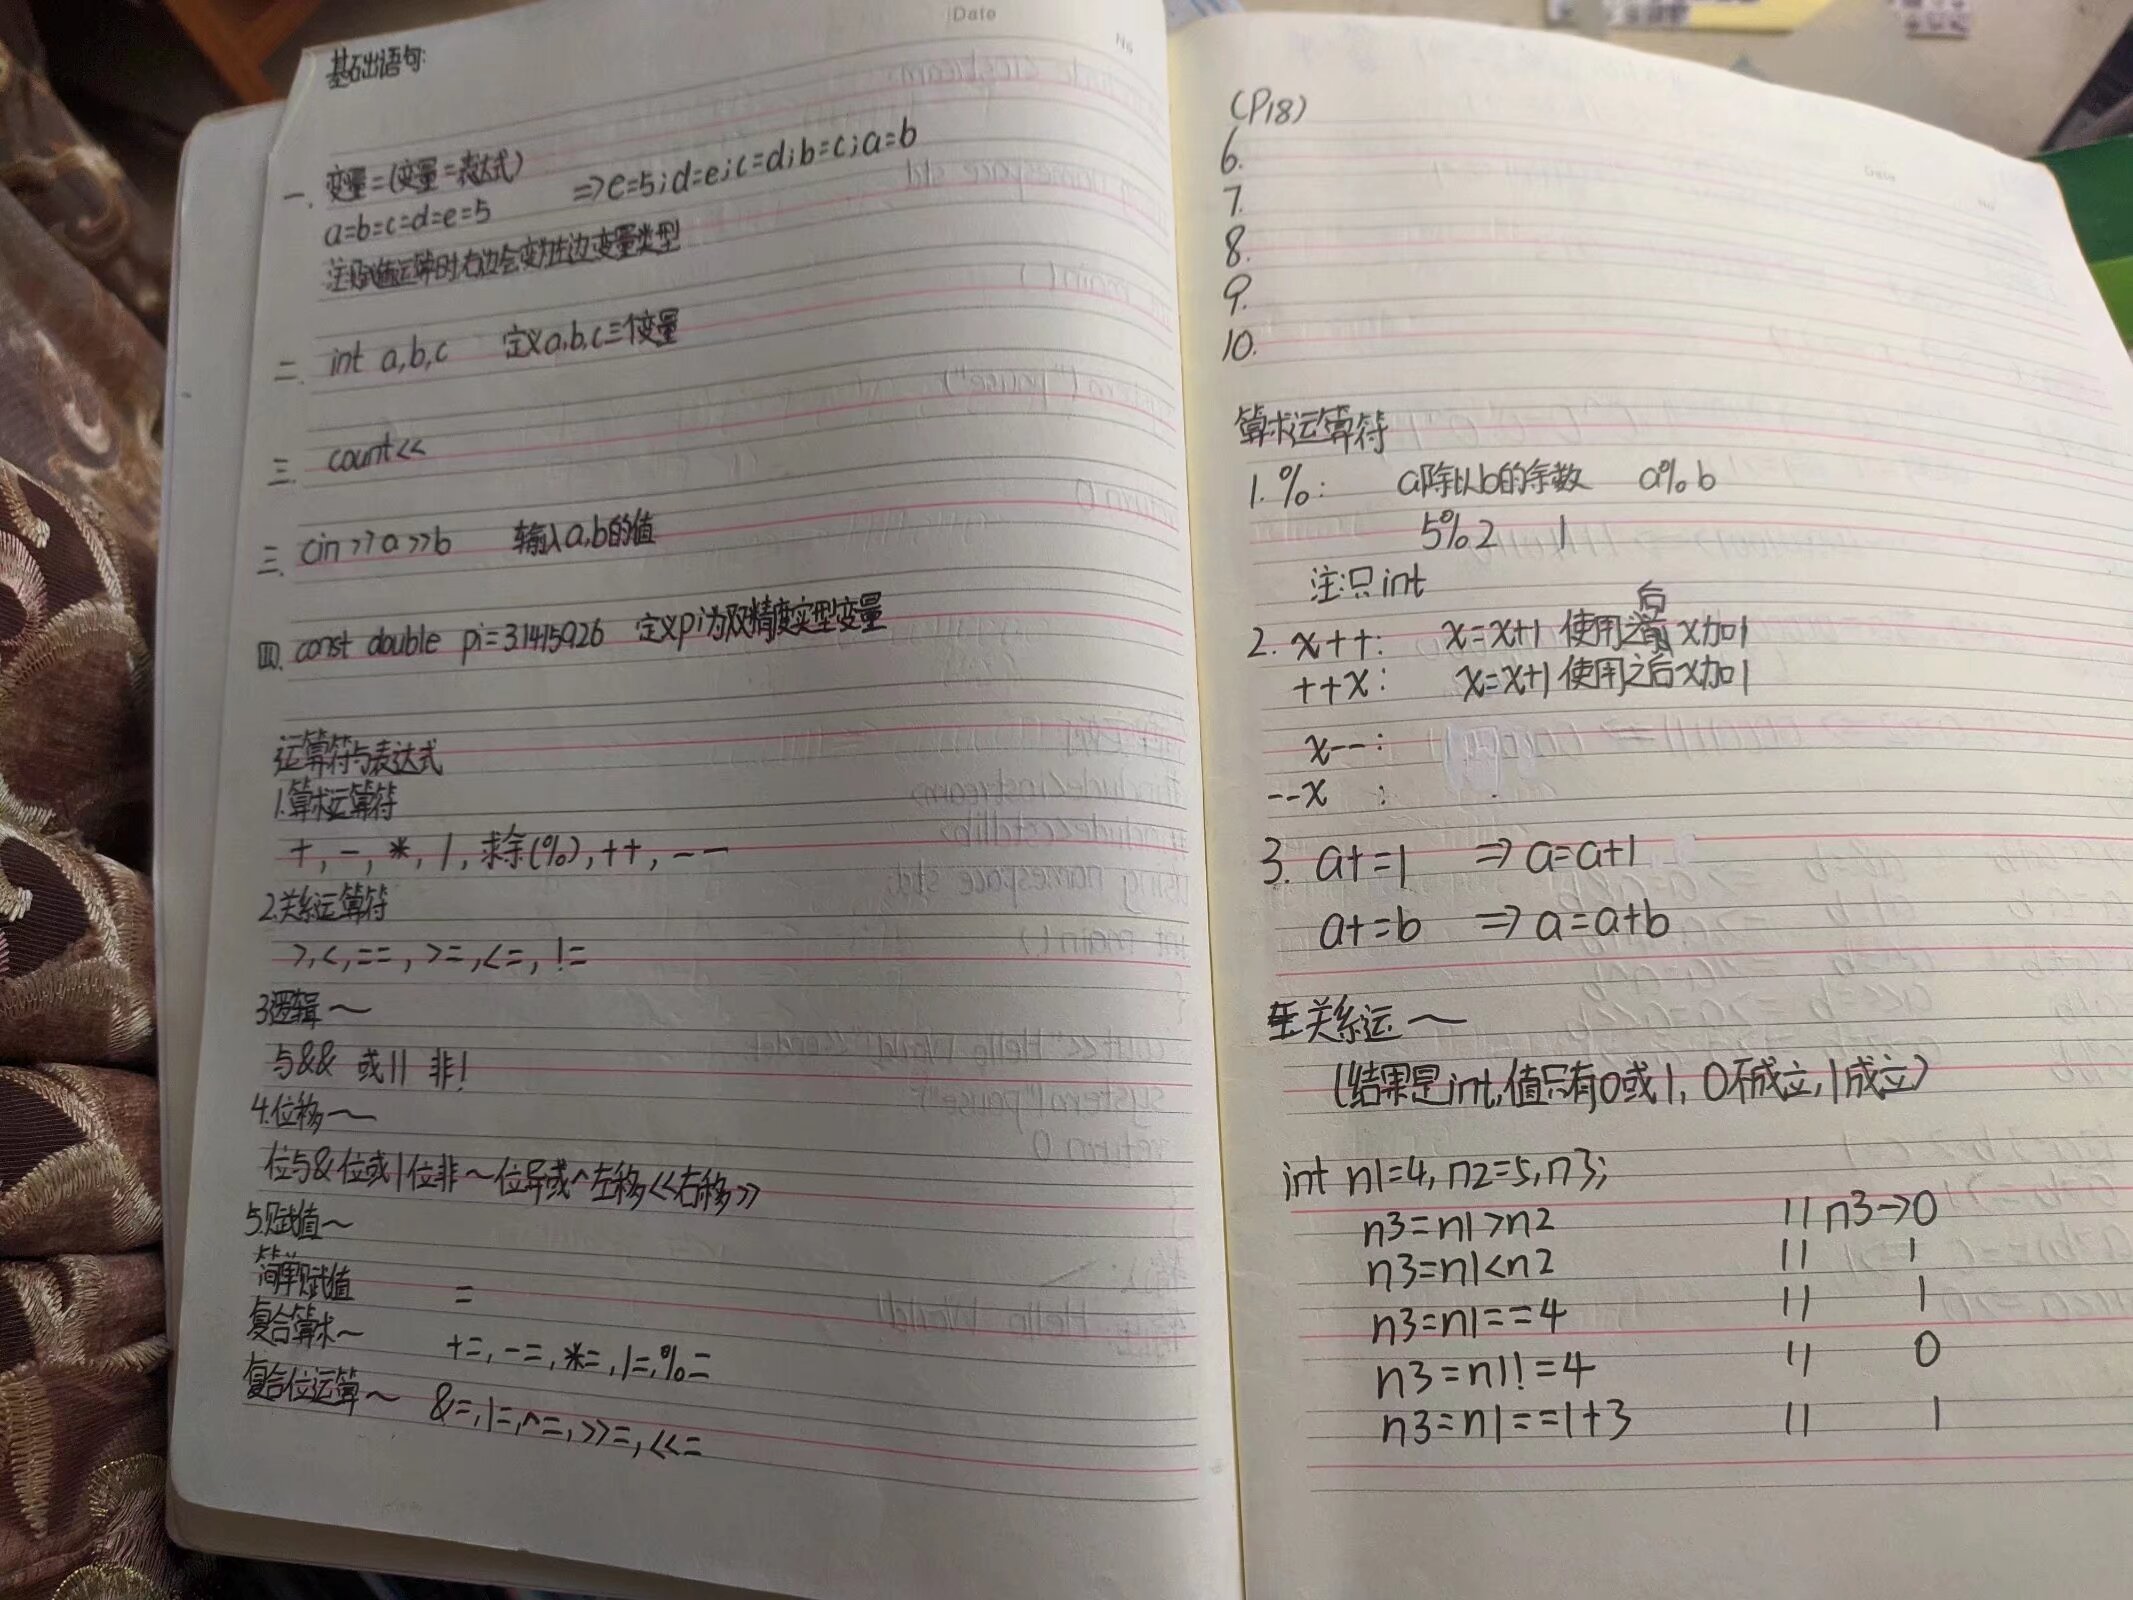 Date
No
基础语句:
一. 变量=(变量=表达式)
a=b=c=d=e=5 => e=5;d=e;c=d;b=c;a=b
注:赋值运算时右边会变为左边变量类型
二. int a,b,c 定义a,b,c三个变量
三. count<<
三. cin>>a>>b 输入a,b的值
四. const double pi=3.1415926 定义pi为双精度实型变量
运算符与表达式
1.算术运算符
+, -, *, /, 求余(%), ++, --
2.关系运算符
>,<,==, >=,<=, !=
3逻辑~
与&& 或|| 非!
4.位移~
位与& 位或| 位非~ 位异或^ 左移<< 右移>>
5.赋值~
简单赋值 =
复合算术~ +=, -=, *=, /=, %=
复合位运算~ &=, |=, ^=, >>=, <<=
(P18)
6.
7.
8.
9.
10.
算术运算符
1. %: a除以b的余数 a%b
5%2 1
注:只int
后
2. x++: x=x+1 使用之前x加1
++x: x=x+1 使用之后x加1
x--:
--x :
3. a+=1 => a=a+1
a+=b => a=a+b
关系运~
(结果是int,值只有0或1, 0不成立,1成立)
int n1=4, n2=5,n3;
n3=n1>n2 // n3->0
n3=n1<n2 // 1
n3=n1==4 // 1
n3=n1!=4 // 0
n3=n1==1+3 // 1